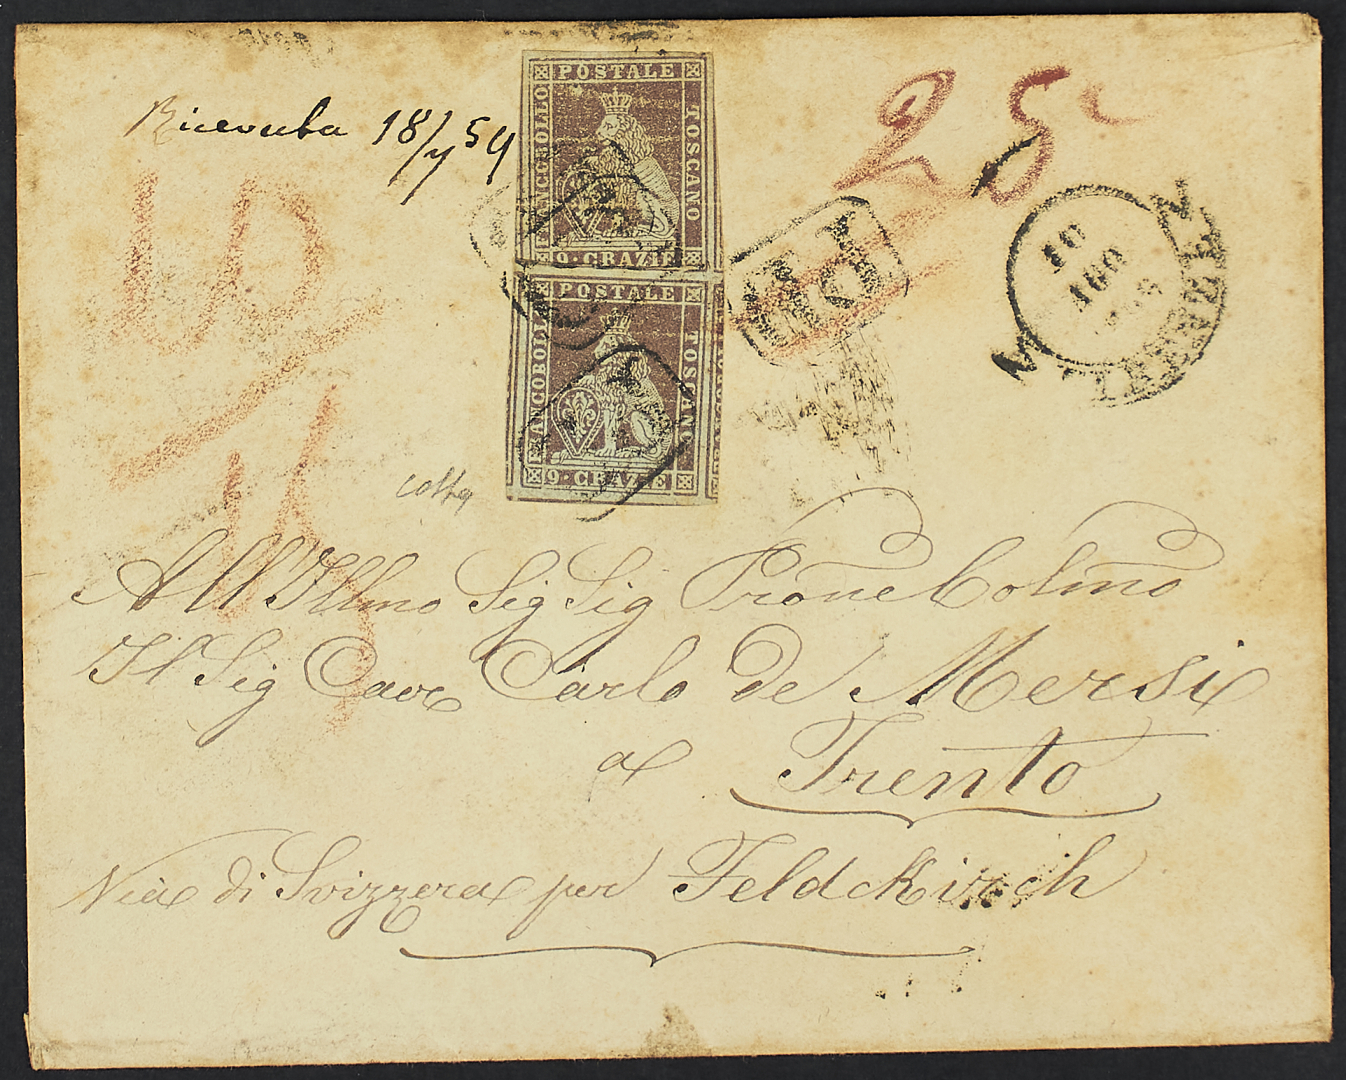 Ricevuta 18/7 59
25
POSTALE
FRANCOBOLLO
TOSCANO
9·CRAZIE
POSTALE
FRANCOBOLLO
TOSCANO
9·CRAZIE
P.D
10
AGO
FIRENZE
All'Illmo Sig Sig Prone Colmo
Il Sig Cave Carlo de Mersi
a Trento
Via di Svizzera per Feldckirch